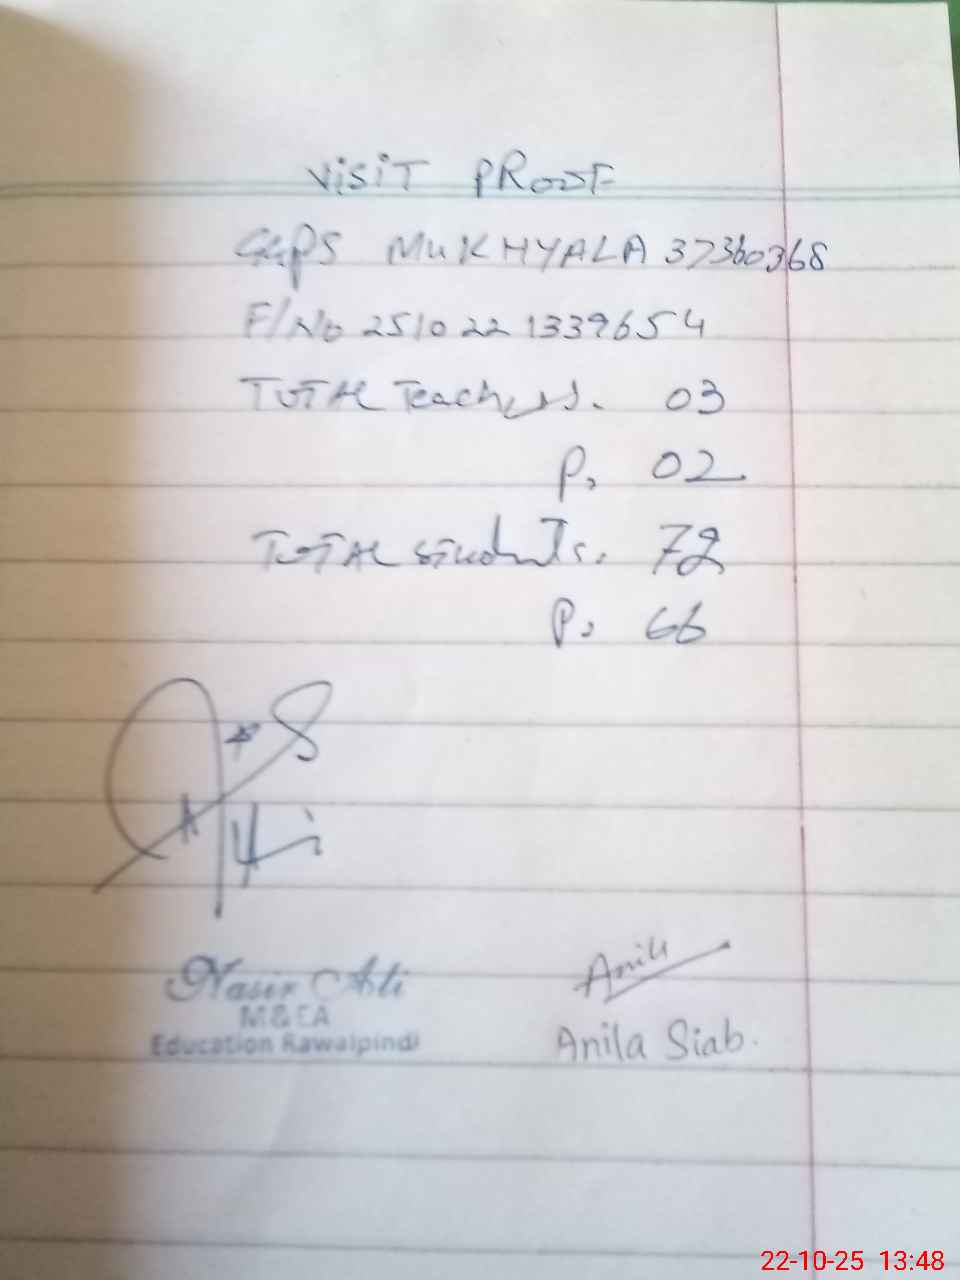 VISIT PROOF
GGPS MUKHYALA 37360368
F/No 251022 1339654
TOTAL Teachers. 03
P. 02
TOTAL students. 72
P. 66
Nasir Ali
M&EA
Education Rawalpindi
Anila
Anila Siab.
22-10-25 13:48